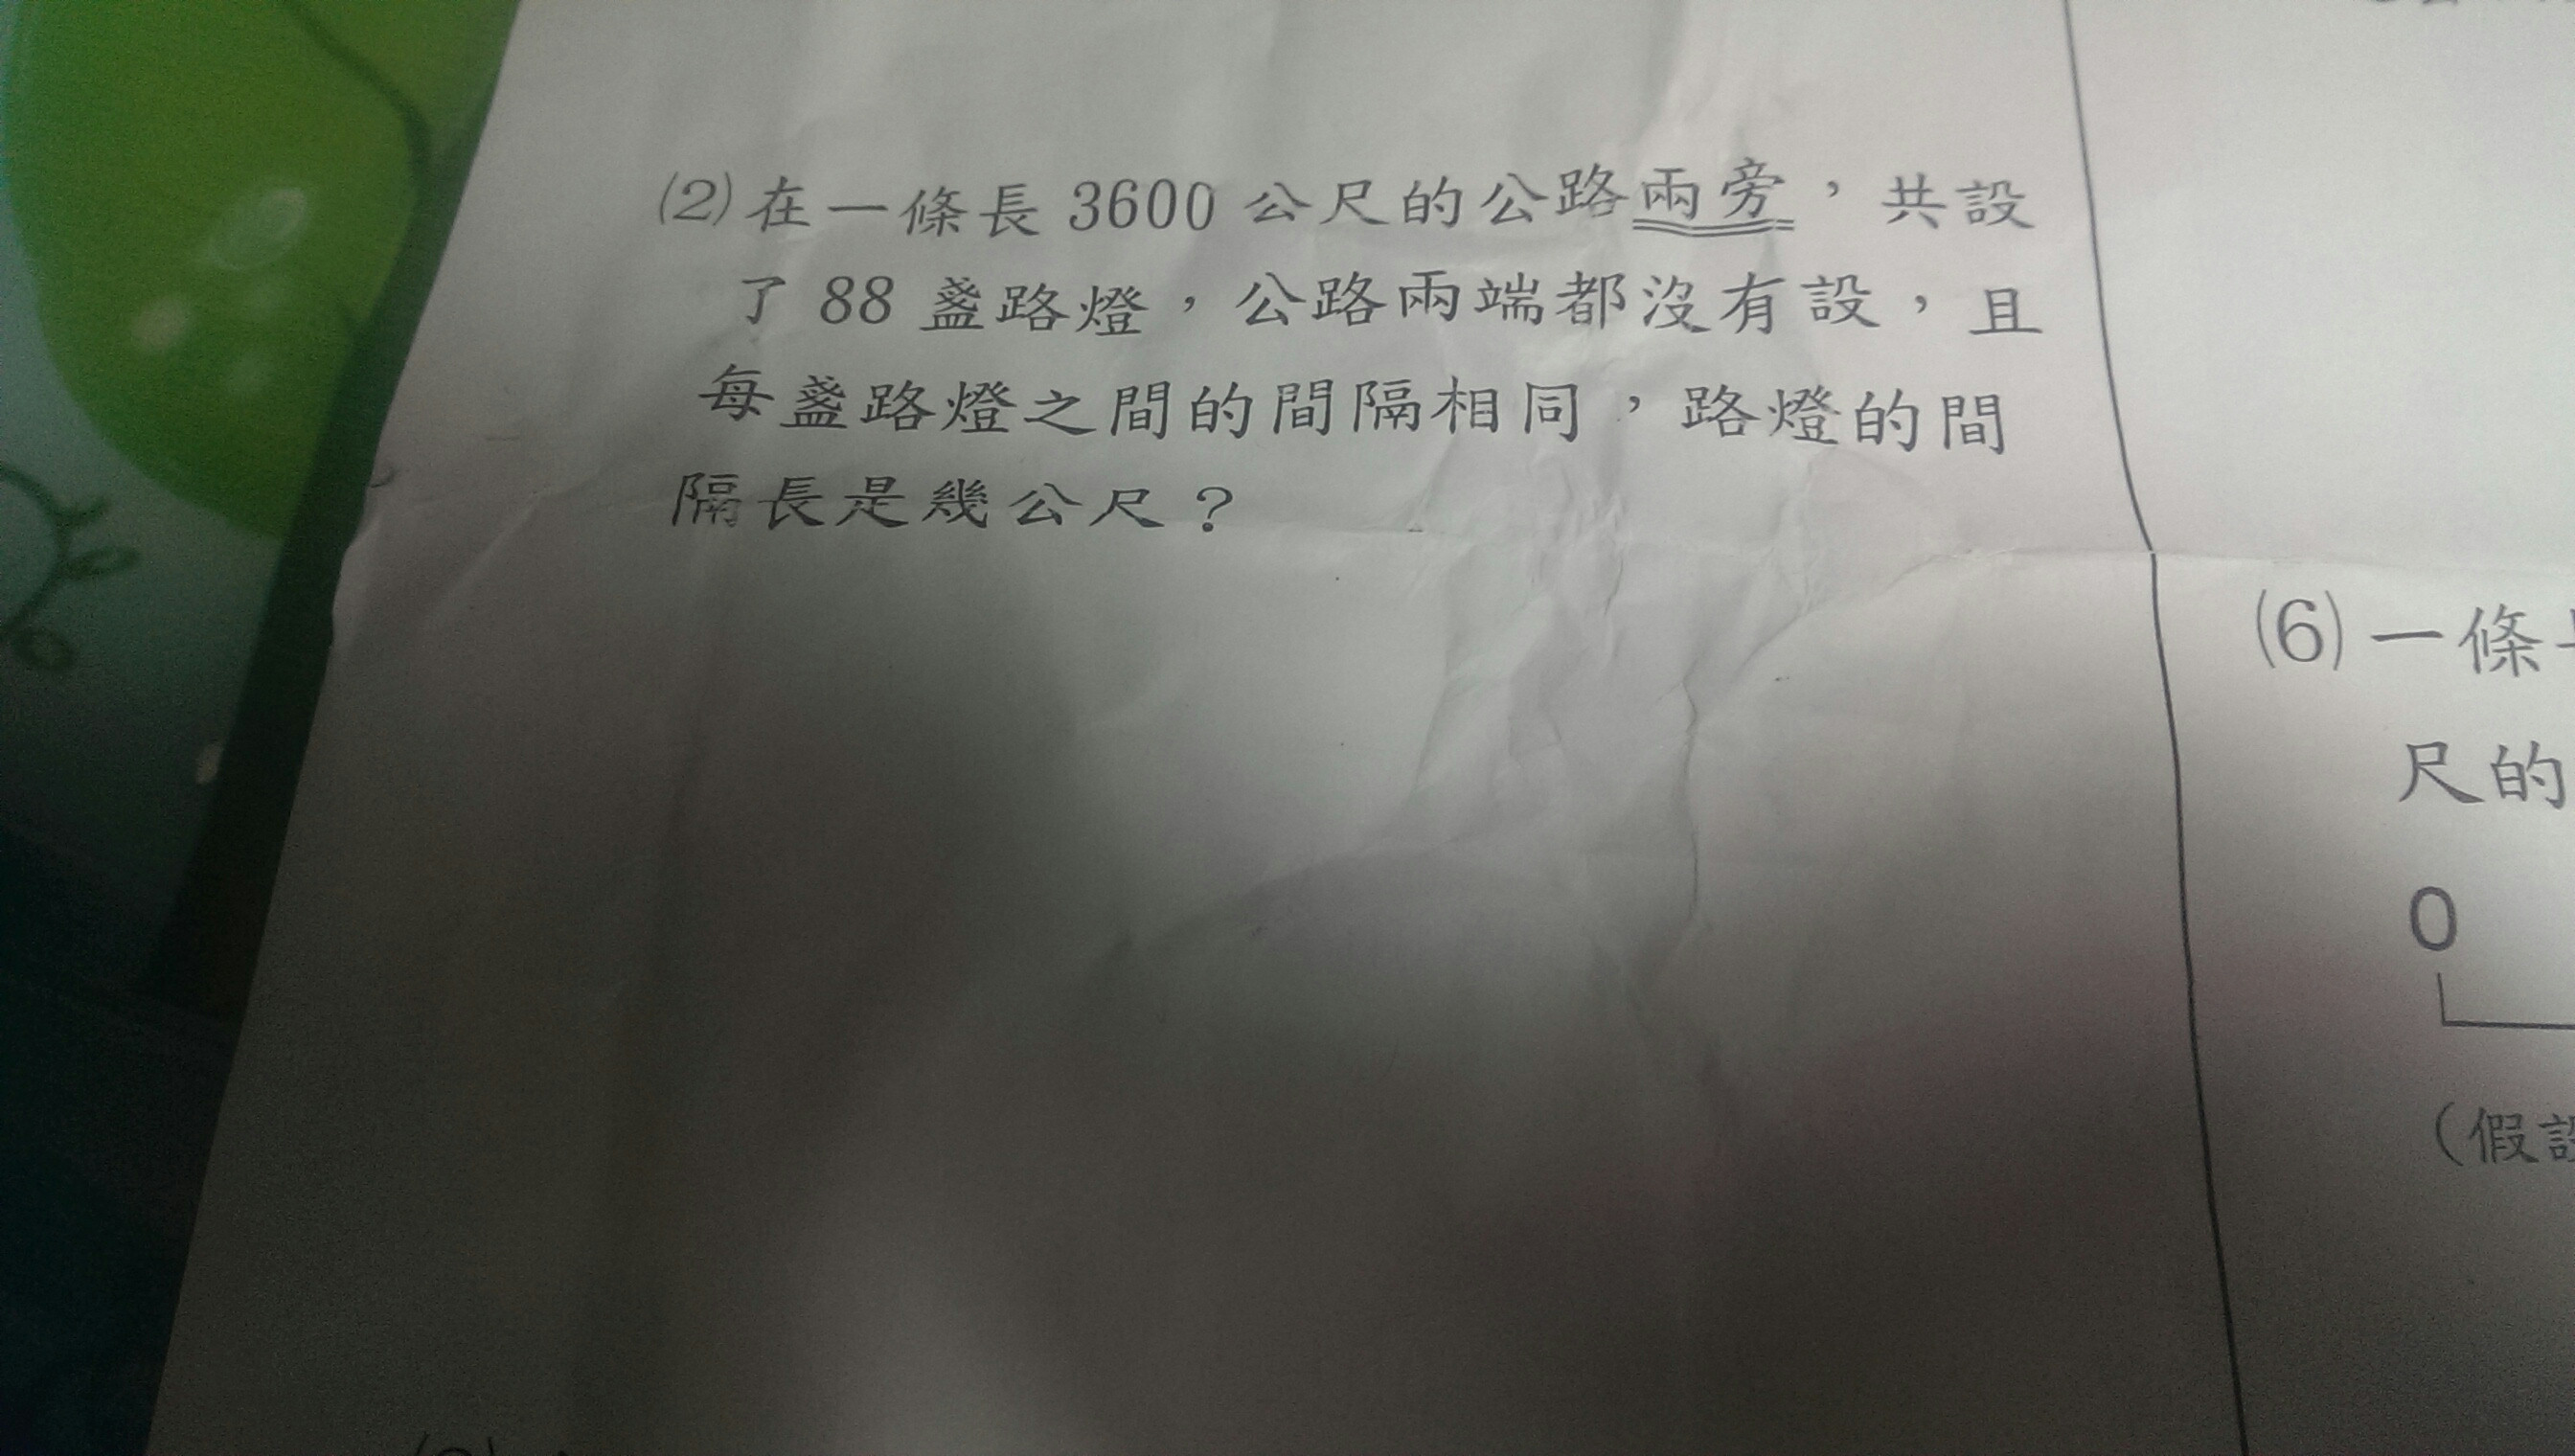 (2)在一條長 3600 公尺的公路兩旁，共設
了 88 盞路燈，公路兩端都沒有設，且
每盞路燈之間的間隔相同，路燈的間
隔長是幾公尺？
(6)一條
尺的
0
（假設